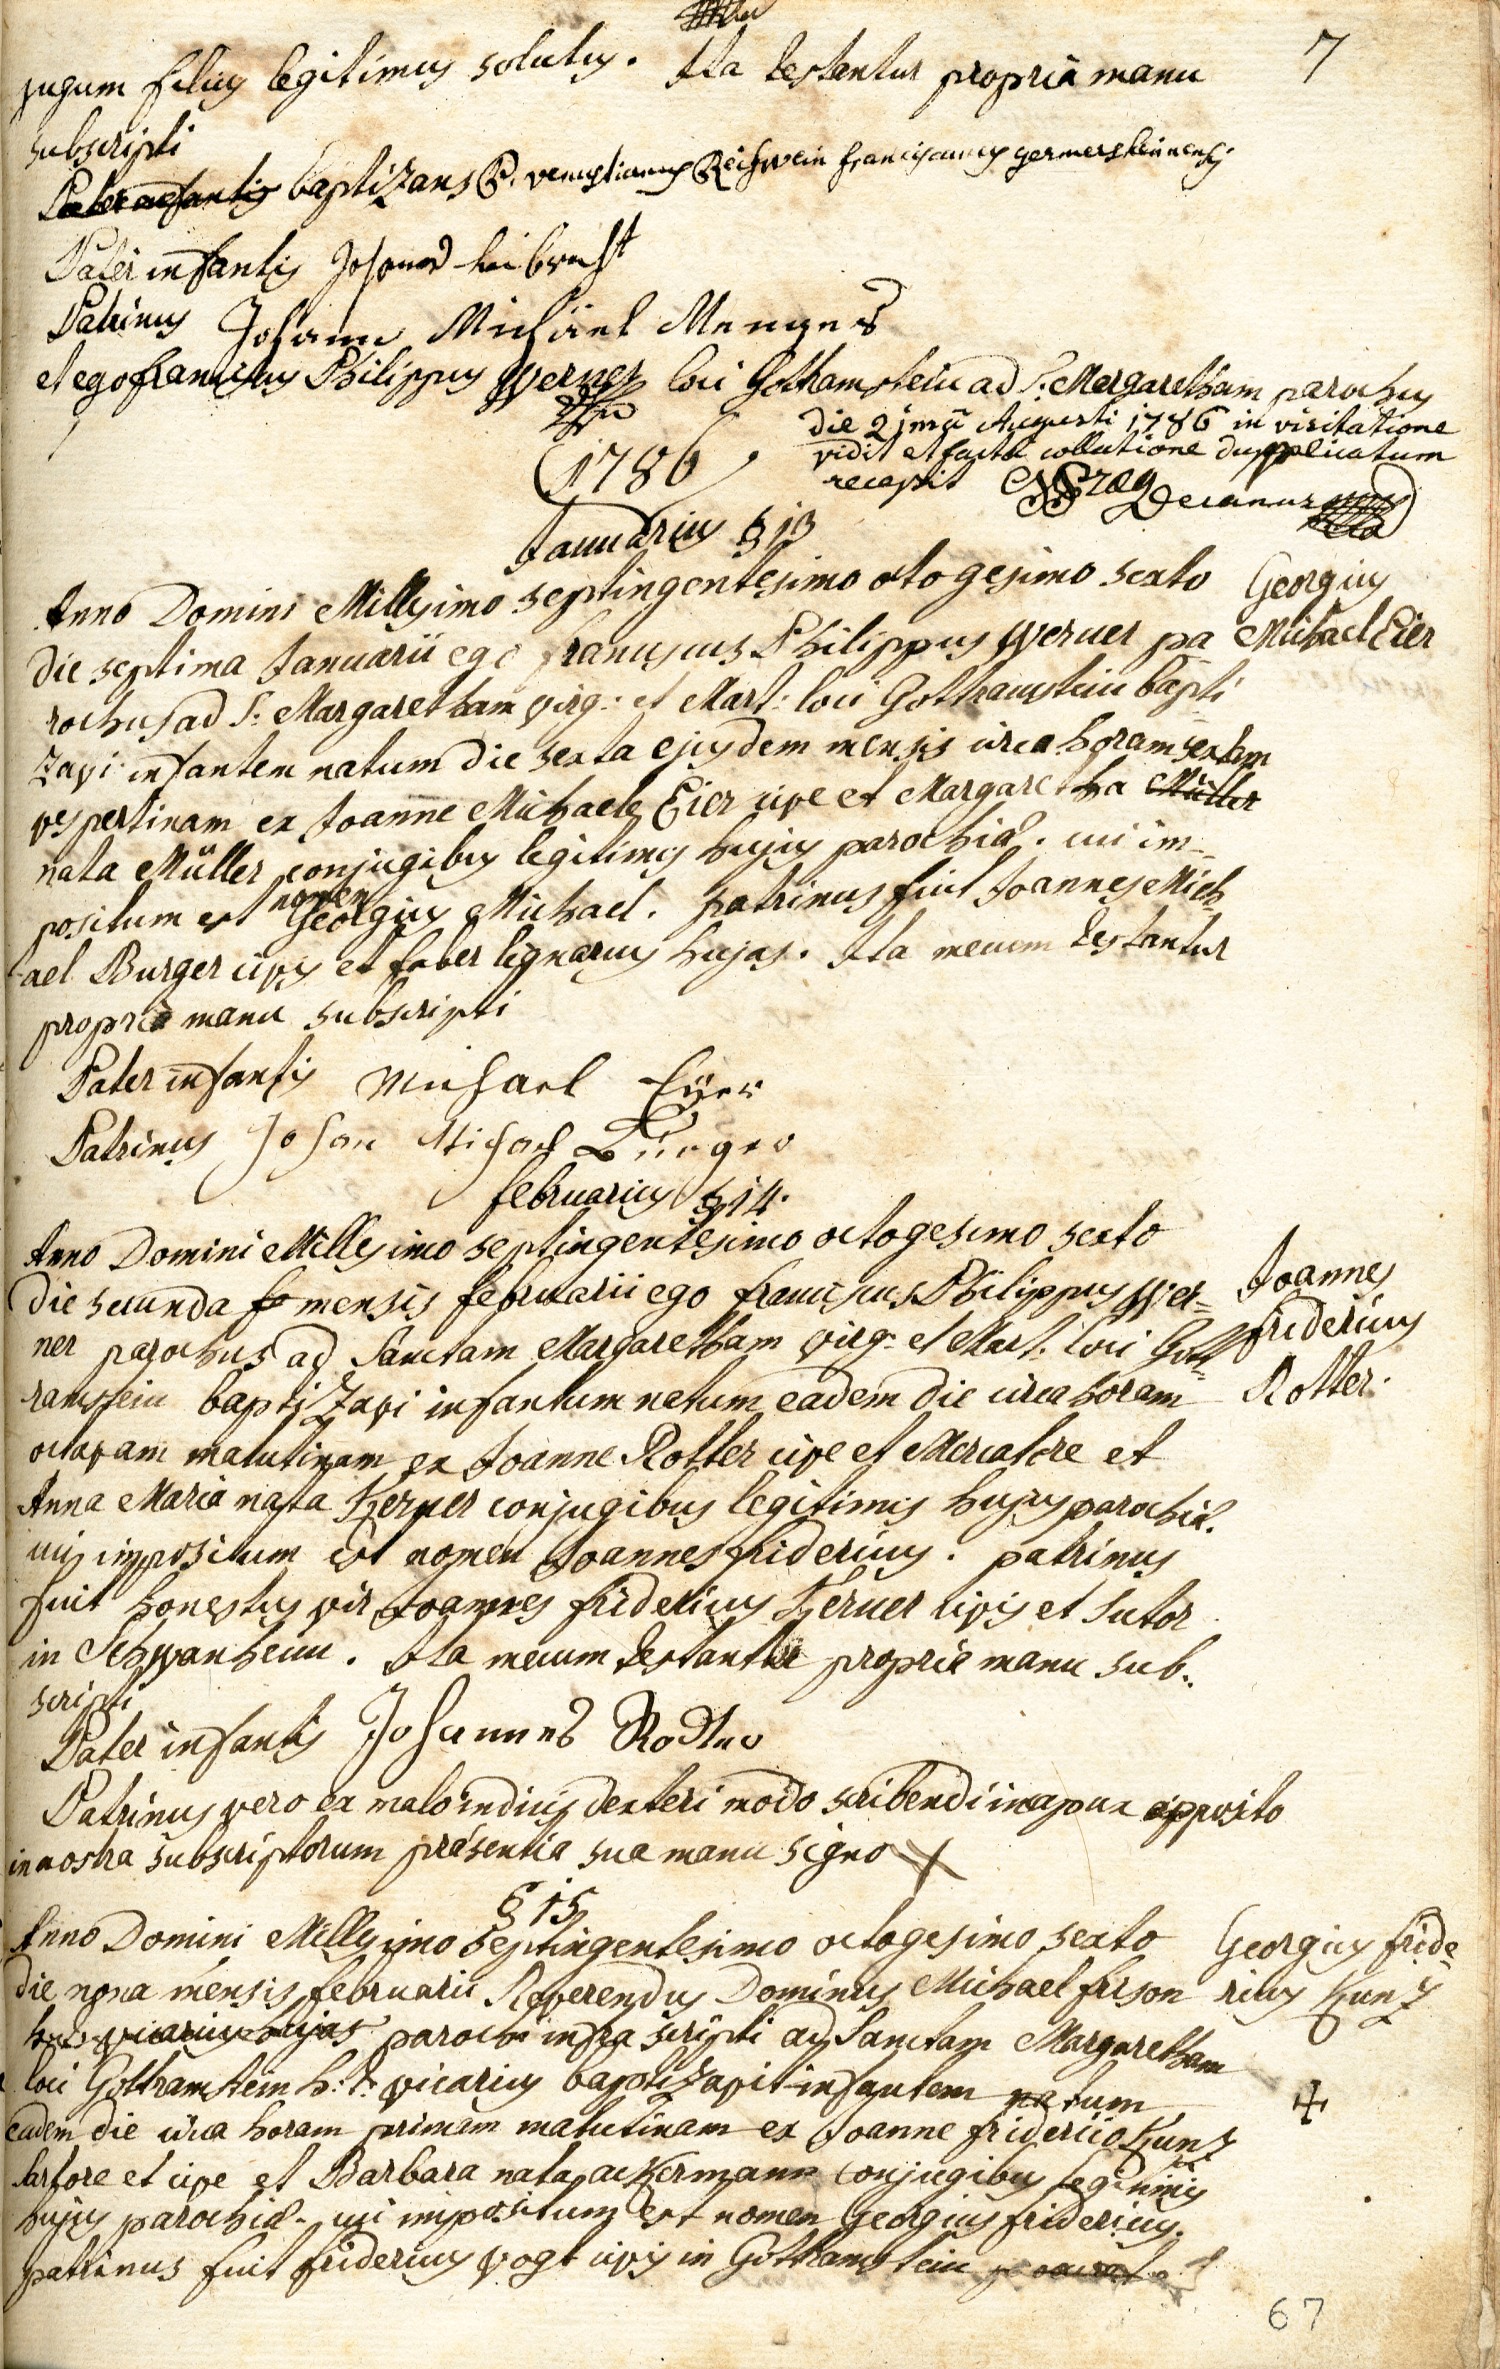 7
jugum filius legitimus solutus. Ita testantur propria manu
subscripti
Pater infantis baptizans P. venustianus Reichwein franciscanus germersheimensis
Pater infantis Johannes Leibrecht
Patrinus Johann Michäel Menges
et ego franciscus Philippus Werner loci Gothamstein ad S. Margaretham parochus
die 2 Augusti 1786 in visitatione
vidit et facta collatione dupplicatum
recepit Decanus
1786
Januarius § 13
Anno Domini Millesimo septingentesimo octogesimo sexto
die septima Januarii ego franciscus Philippus Werner pa
rochus ad S: Margaretham virg: et Mart: loci Gothramstein bapti
zavi infantem natum die sexta ejusdem mensis circa horam sextam
vespertinam ex Joanne Michaele Eier cive et Margaretha Müller
nata Müller conjugibus legitimis hujus parochiæ. cui im=
positum est nomen Georgius Michael. patrinus fuit Joannes Mich=
ael Burger civis et faber lignarius hujas. Ita mecum testantur
propria manu subscripti
Georgius
Michael Eier
Pater infantis Michael Eÿer
Patrinus Johan Michael Bürger
februarius § 14.
Anno Domini Millesimo septingentesimo octogesimo sexto
die secunda fe mensis februarii ego franciscus Philippus Wer=
ner parochus ad Sanctam Margaretham virg. et Mart. loci Gott=
ramstein baptizavi infantem natum eadem die circa horam
octavam matutinam ex Joanne Rotter cive et Mercatore et
Anna Maria nata Kerner conjugibus legitimis hujus parochiæ.
cui impositum est nomen Joannes fridericus. patrinus
fuit honestus vir Joannes fridericus Kerner civis et Sutor
in Schwanheim. Ita mecum testantur propria manu sub=
scripti
Joannes
fridericus
Rotter.
Pater infantis Johannes Rodter
Patrinus vero ex malo indicis dexteri modo scribendi incapax apposito
in nostra subscriptorum præsentia sua manu signo X
§ 15
Anno Domini Millesimo septingentesimo octogesimo sexto
die nona mensis februarii Reverendus Dominus Michael frison
vicarius hujas parochi infra scripti ad Sanctam Margaretham
loci Gothramstein h. t. vicarius baptizavit infantem natum
eadem die circa horam primam matutinam ex Joanne friderico Kunz
sartore et cive et Barbara nata ackermann conjugibus legitimis
hujus parochiæ. cui impositum est nomen Georgius fridericus.
patrinus fuit fridericus vogt civis in Gothramstein
Georgius fride=
ricus Kunz
67